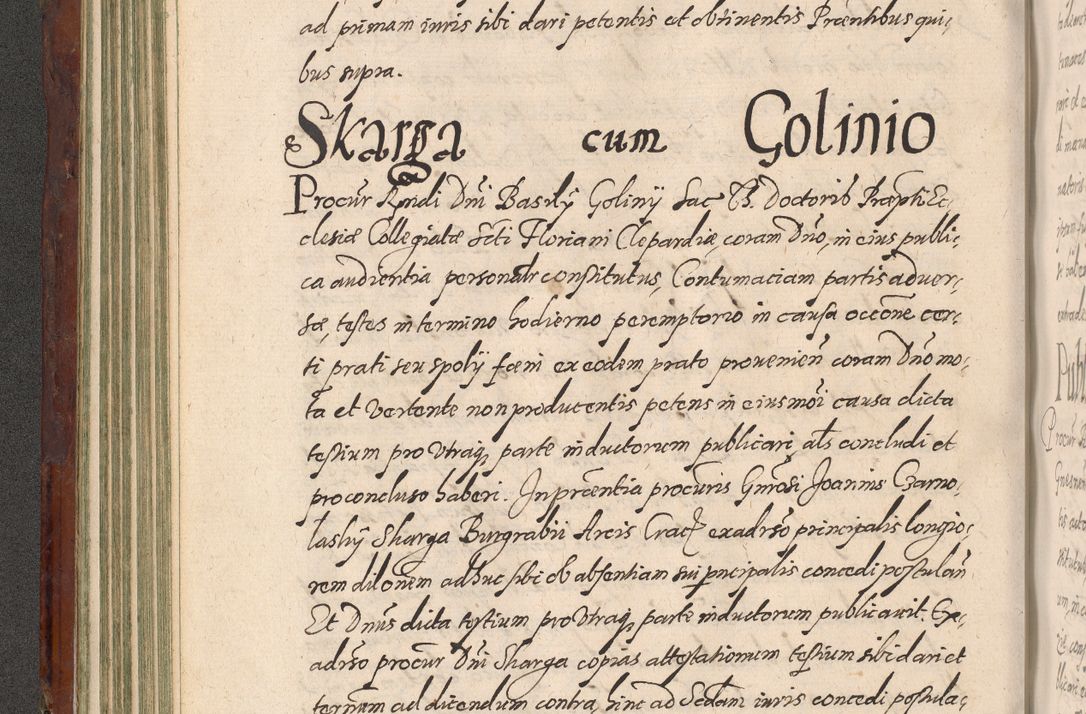 ad primam iuris sibi dari petentis et obtinentis Præntibus qui,
bus supra.
Skarga cum Golinio
Procur Rndi Dni Basilÿ Golinÿ Sac Th. Doctoris Præpti Ec,
clesiæ Collegiatæ Scti Floriani Clepardiæ, coram Dno, in eius publi,
ca audientia personalr constitutus, Contumaciam partis adver,
sæ, testes in termino hodierno peremptorio in causa occone cer,
ti prati seu spolÿ fœni ex eodem prato provenien coram Dno mo,
ta et vertente non producentis petens in eiusmoi causa dicta
testium pro utraq parte inductorum publicari, als concludi et
pro concluso haberi. In præntia procuris Gnrosi Joannis Czarno,
laskÿ Skarga Burgrabii Arcis Crac exadrso principalis longio,
rem dilonem adhuc sibi ob absentiam sui pncipalis concedi postulan
Et Dnus dicta testium pro utraq parte inductorum publicavit. Ex,
adrso procur Dni Skarga copias attestationum testium sibi dari et
ternum ad dicendum contra, hinc ad Sedam iuris concedi postula,